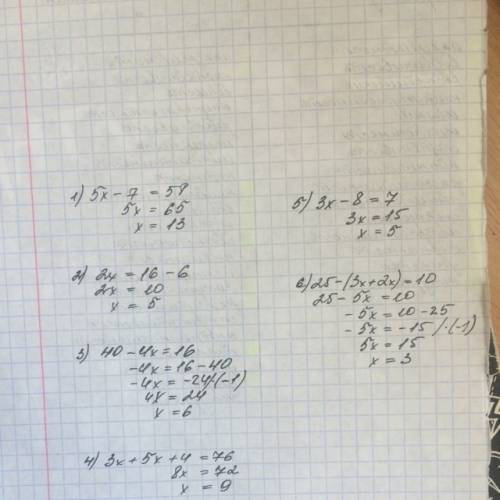 1) 5x - 7 = 58
5x = 65
x = 13
2) 2x = 16 - 6
2x = 10
x = 5
3) 40 - 4x = 16
-4x = 16 - 40
-4x = -24 /·(-1)
4x = 24
x = 6
4) 3x + 5x + 4 = 76
8x = 72
x = 9
5) 3x - 8 = 7
3x = 15
x = 5
6) 25 - (3x + 2x) = 10
25 - 5x = 10
-5x = 10 - 25
-5x = -15 /·(-1)
5x = 15
x = 3